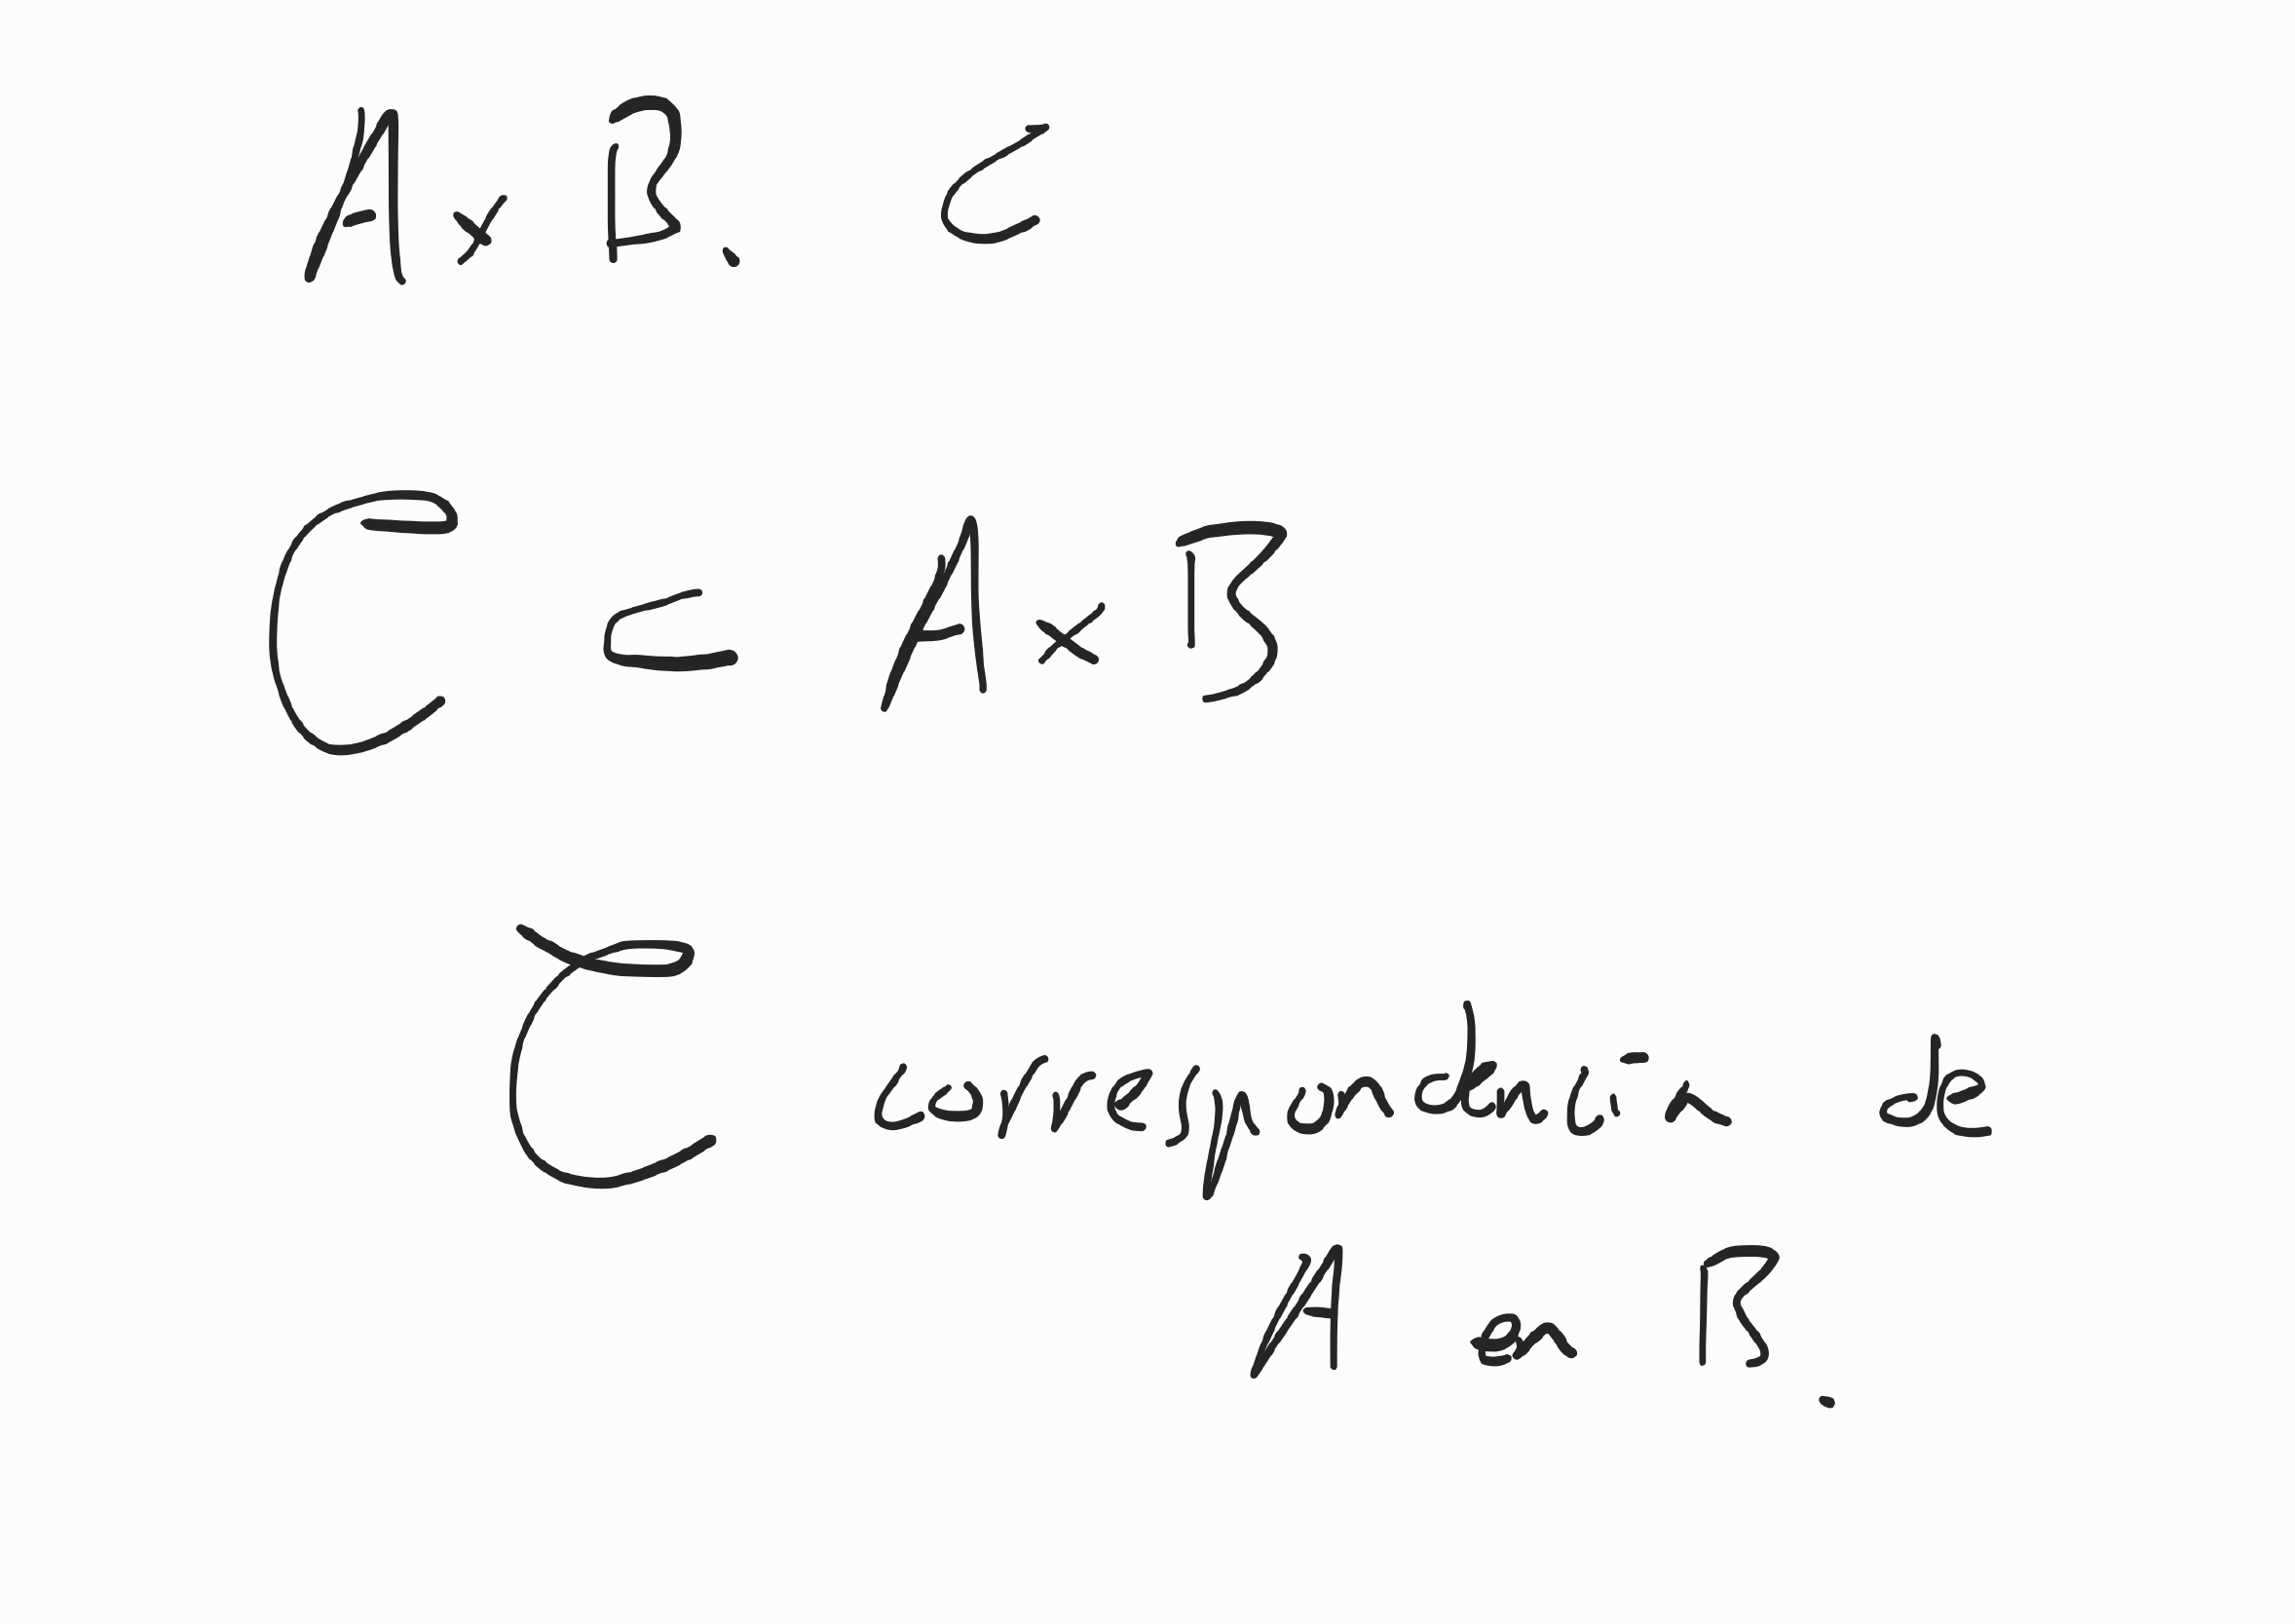 A × B. C
C ⊂ A × B
C correspondencia de
A en B.